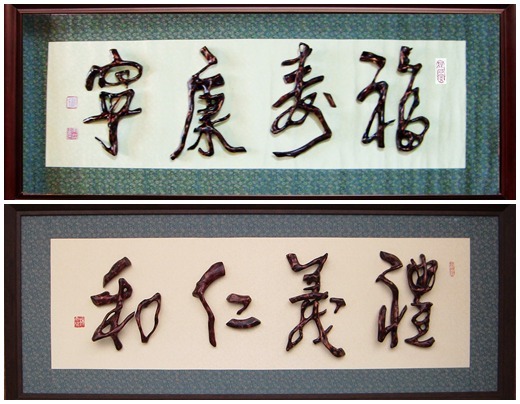 福寿康寧
禮義仁和